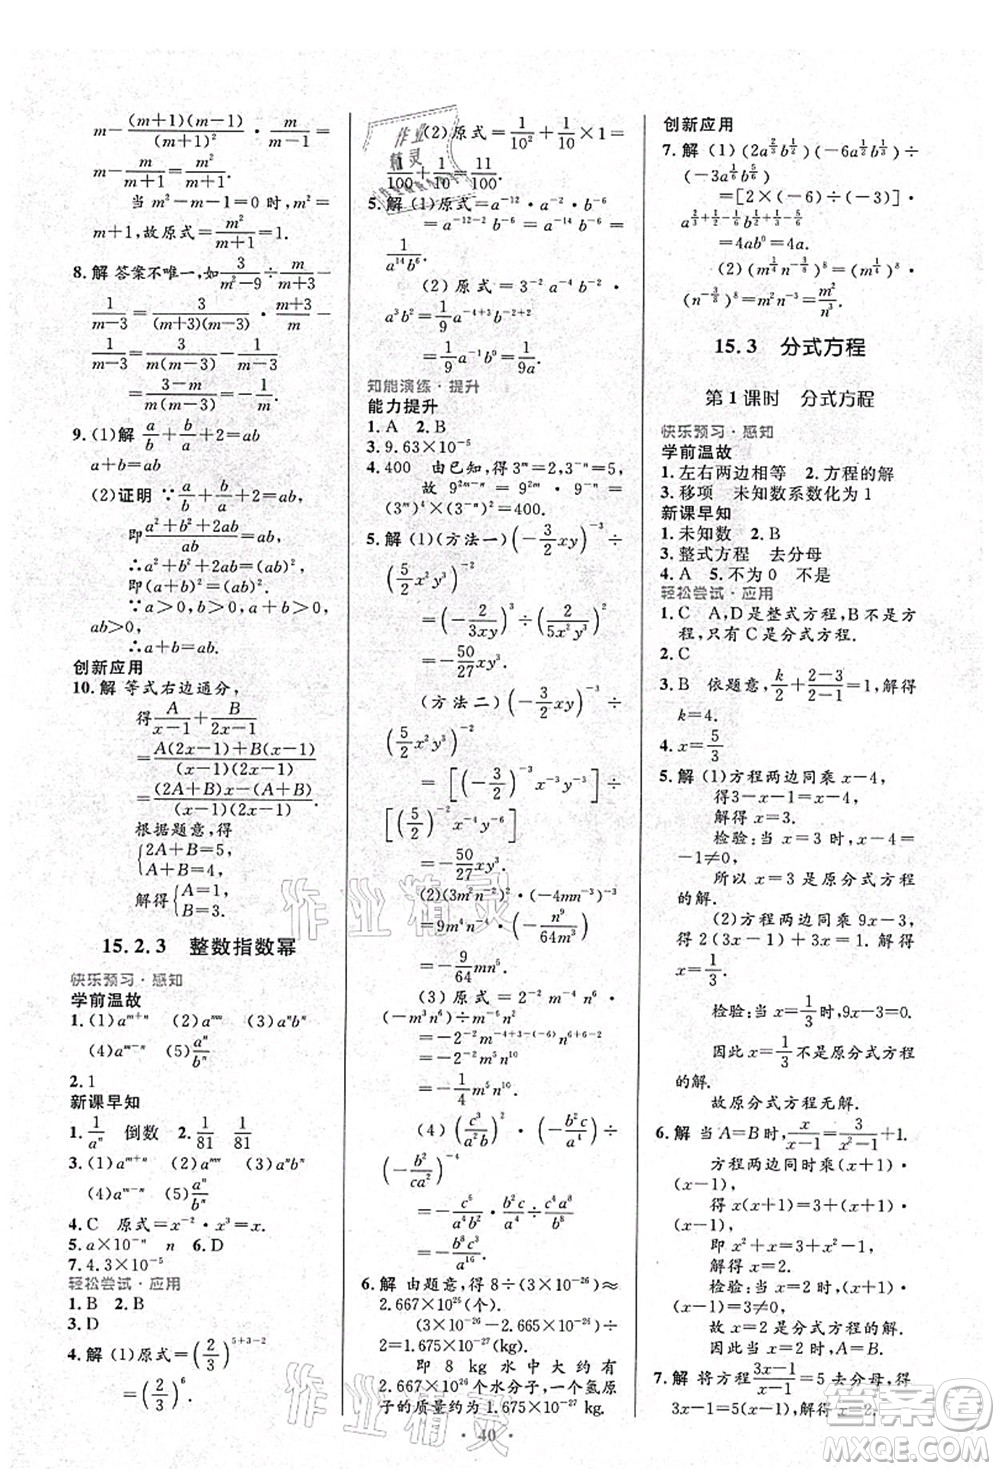 m-\frac{(m+1)(m-1)}{(m+1)^2}·\frac{m}{m-1}=
m-\frac{m}{m+1}=\frac{m^2}{m+1}.
当 m²-m-1=0 时,m²=
m+1,故原式=\frac{m^2}{m^2}=1.
8.解 答案不唯一,如\frac{3}{m^2-9}÷\frac{m}{m+3}-
\frac{1}{m-3}=\frac{3}{(m+3)(m-3)}·\frac{m+3}{m}-
\frac{1}{m-3}=\frac{3-m}{m(m-3)}=-\frac{1}{m}.
9.(1)解 \frac{a}{b}+\frac{b}{a}+2=ab,
a+b=ab.
(2)证明 ∵\frac{a}{b}+\frac{b}{a}+2=ab,
即\frac{a^2+b^2+2ab}{ab}=ab,
∴a²+b²+2ab=a²b²,
即(a+b)²=(ab)².
∵a>0,b>0,∴a+b>0,
ab>0.
∴a+b=ab.
创新应用
10.解 等式右边通分,
得\frac{A}{x-1}+\frac{B}{2x-1}
=\frac{A(2x-1)+B(x-1)}{(x-1)(2x-1)}
=\frac{(2A+B)x-(A+B)}{(x-1)(2x-1)}
根据题意,得
{2A+B=5,
A+B=4,
解得{A=1,
B=3.
15.2.3 整数指数幂
快乐预习·感知
学前温故
1.(1)a^{m+n} (2)a^{mn} (3)a^n b^n
(4)a^{m-n} (5)\frac{a^n}{b^n}
2.1
新课早知
1.\frac{1}{a^n} 倒数 2.\frac{1}{81} \frac{1}{81}
3.(1)a^{m+n} (2)a^{mn} (3)a^n b^n
(4)a^{m-n} (5)\frac{a^n}{b^n}
4.C 原式=x^{-2}·x³=x.
5.a×10^{-n} n 6.D
7.4.3×10^{-5}
轻松尝试·应用
1.B 2.B
3.D
4.解 (1)原式=(\frac{2}{3})^{5+3-2}
=(\frac{2}{3})^6.
(2)原式=\frac{1}{10^2}+\frac{1}{10}×1=
\frac{1}{100}+\frac{1}{10}=\frac{11}{100}.
5.解 (1)原式=a^{-12}·a^{-2}·b^{-6}
=a^{-12-2}b^{-6}=a^{-14}b^{-6}=
\frac{1}{a^{14}b^6}.
(2)原式=3^{-2}a^{-4}b^{-2}·
a³b²=\frac{1}{9}a^{-4+3}b^{-2+2}=
\frac{1}{9}a^{-1}b^0=\frac{1}{9a}.
知能演练·提升
能力提升
1.A 2.B
3.9.63×10^{-5}
4.400 由已知,得3^m=20,3^n=
故 9^{2m-n}=9^{2m}·9^{-n}=
(3^m)^4×(3^n)^{-2}=400.
5.解 (1)(方法一)(-\frac{3}{2}xy)^{-3}÷
(\frac{5}{2}x²y)^{-2}
=(-\frac{2}{3xy})³÷(\frac{2}{5x^2y})²
=-\frac{50}{27}xy^{-1}.
(方法二)(-\frac{3}{2}xy)^{-3}÷
(\frac{5}{2}x²y)^{-2}
=[(-\frac{3}{2})^{-3}x^{-3}y^{-3}]÷
[(\frac{5}{2})^{-2}x^{-4}y^{-2}]
=-\frac{50}{27}xy^{-1}.
(2)(3m²n^{-2})²·(-4mn^{-3})^{-3}
=9m⁴n^{-4}·(-\frac{n^9}{64m^3})
=-\frac{9}{64}mn⁵.
(3)原式=2^{-2}m^{-4}n⁶·
(-m³n⁶)÷m^{-6}n^{-2}
=-2^{-2}m^{-4+3-(-6)}n^{6+6-2}
=-2^{-2}m⁵n^{10}
=-\frac{1}{4}m⁵n^{10}.
(4)原式=(\frac{c^2}{a^2b})³÷(-\frac{b^2c}{a^4})÷
(-\frac{b^2}{ca^2})^{-4}
=-\frac{c^6}{a^6b^3}·\frac{a^4}{b^2c}·\frac{b^8}{c^4a^8}
=-\frac{b^3c}{a^{16}}.
6.解 由题意,得 8÷(3×10^{-26})≈
2.667×10^{26}(个).
(3×10^{-26}-2.665×10^{-26})÷
2=1.675×10^{-27}(kg).
即 8 kg 水中大约有
2.667×10^{26}个水分子,一个氢原
子的质量约为1.675×10^{-27}kg.
创新应用
7.解 (1)(2a^{\frac{2}{3}}b^{\frac{1}{2}})(-6a^{\frac{1}{2}}b^{\frac{1}{3}})÷
(-3a^{\frac{1}{6}}b^{\frac{5}{6}})
=[2×(-6)÷(-3)]·
a^{\frac{2}{3}+\frac{1}{2}-\frac{1}{6}}b^{\frac{1}{2}+\frac{1}{3}-\frac{5}{6}}
=4ab⁰=4a.
(2)(m^{\frac{1}{4}}n^{-\frac{3}{8}})⁸=(m^{\frac{1}{4}})⁸·
(n^{-\frac{3}{8}})⁸=m²n^{-3}=\frac{m^2}{n^3}.
15.3 分式方程
第1课时 分式方程
快乐预习·感知
学前温故
1.左右两边相等 2.方程的解
3.移项 未知数系数化为1
新课早知
1.未知数 2.B
3.整式方程 去分母
4.A 5.不为0 不是
轻松尝试·应用
1.C A,D是整式方程,B不是方
程,只有C是分式方程.
2.C
3.B 依题意,得\frac{k}{2}+\frac{2-3}{2-1}=1,解得
k=4.
4.x=\frac{5}{3}
5.解 (1)方程两边同乘 x-4,
得3-x-1=x-4.
解得 x=3.
检验:当 x=3 时,x-4=
-1≠0,
所以 x=3 是原分式方程
的解.
(2)方程两边同乘9x-3,
得 2(3x-1)+3x=1,解得
x=\frac{1}{3}.
检验:当 x=\frac{1}{3}时,9x-3=0,
因此 x=\frac{1}{3}不是原分式方程
的解.
故原分式方程无解.
6.解 当A=B时,\frac{x}{x-1}=\frac{3}{x^2-1}+1.
方程两边同时乘(x+1)·
(x-1),
得x(x+1)=3+(x+1)·
(x-1),即 x²+x=3+x²-1,
解得 x=2.
检验:当 x=2 时,(x+1)·
(x-1)=3≠0,
故 x=2 是分式方程的解.
因此,当x=2时,A=B.
7.解 将方程\frac{3x-1}{x-1}=5去分母,得
3x-1=5(x-1),解得 x=2.
·40·
作业精灵
作业精灵
作业精灵
答案圈
MXQE.COM